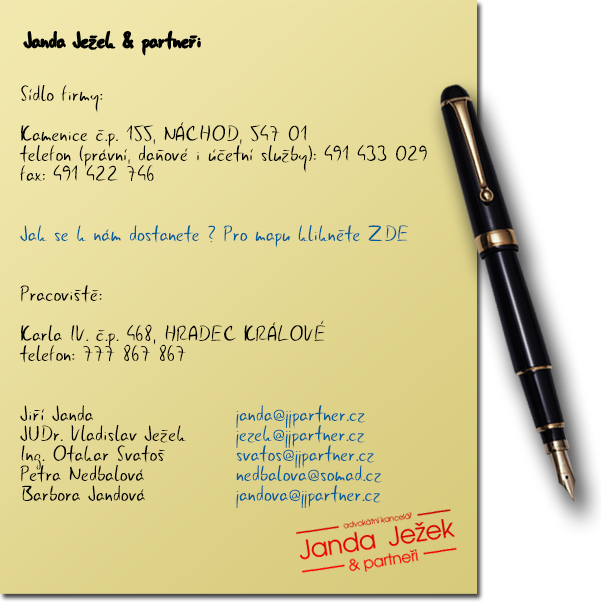 Janda Ježek & partneři
Sídlo firmy:
Kamenice č.p. 155, NÁCHOD, 547 01
telefon (právní, daňové i účetní služby): 491 433 029
fax: 491 422 746
Jak se k nám dostanete ? Pro mapu klikněte ZDE
Pracoviště:
Karla IV. č.p. 468, HRADEC KRÁLOVÉ
telefon: 777 867 867
Jiří Janda janda@jjpartner.cz
JUDr. Vladislav Ježek jezek@jjpartner.cz
Ing. Otakar Svatoš svatos@jjpartner.cz
Petra Nedbalová nedbalova@somad.cz
Barbora Jandová jandova@jjpartner.cz
advokátní kancelář
Janda Ježek
& partneři